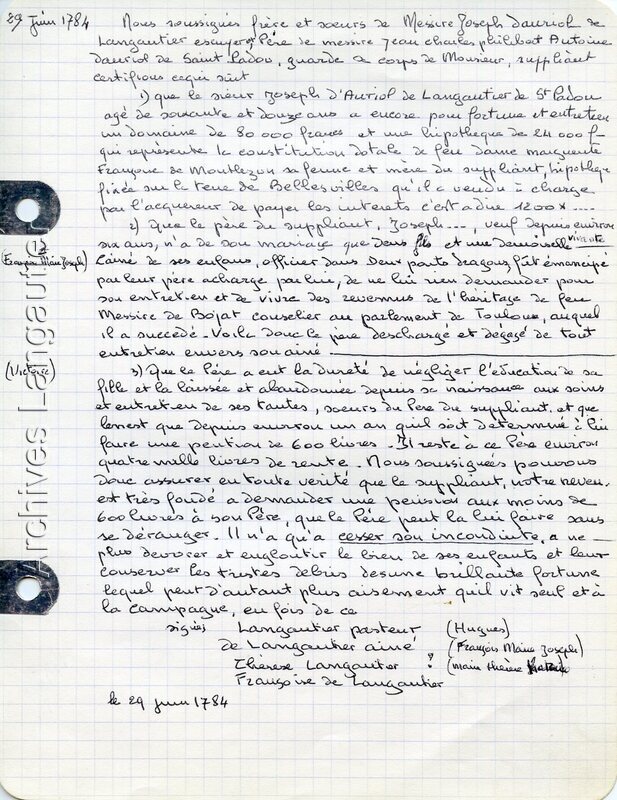 29 Juin 1784
Nous soussignés frère et soeurs de Messire Joseph dauriol de
Langautier escuyer, Père de messire Jean charles philibert Antoine
dauriol de Saint Padou, guarde de corps de Monsieur, suppliant
certifions cequi suit
1) que le sieur Joseph d'Auriol de Langautier de St Padou
agé de soixante et douze ans a encore pour fortune et entretien
un domaine de 80 000 francs et une hipotheque de 24 000 f
qui représente la constitution dotale de feu dame marguerite
Françoise de Monthezon sa femme et mère du suppliant, hipotheque
fixée sur la terre de Bellesvilles qu'il a vendu à charge
par l'acquereur de payer les interets c'est a dire 1200 ....
2) Que le père du suppliant, Joseph ...., veuf depuis environ
six ans, n'a de son mariage que deux fils et une demoiselle vivante
(François Marie Joseph)
L'ainé de ses enfans, officier dans Deux ponts dragons, fut émancipé
par leur père acharge par lui, de ne lui rien demander pour
son entretien et de vivre des revenus de l'héritage de feu
Messire de Bojat conselier au parlement de Toulouse, auquel
il a succedé. Voilà donc le père deschargé et dégagé de tout
entretien envers son ainé.
(Victoire)
3) Que le Père a eut la dureté de négliger l'éducation de sa
fille et la laissée et abandonnée depuis sa naissance aux soins
et entretien de ses tantes, soeurs du Père du suppliant. et que
ce nest que depuis environ un an quil s'est determiné à lui
faire une pention de 600 livres. Il reste à ce Père environ
quatre mille livres de rente. Nous soussignées pouvons
donc assurer en toute verité que le suppliant, notre neveu,
est très fondé a demander une pension aux moins de
600 livres à son Père, que le Père peut la lui faire sans
se déranger. Il n'a qu'a cesser son inconduite, a ne
plus devorer et engloutir le bien de ses enfants et leur
conserver les tristes debris desune brillante fortune
lequel peut d'autant plus aisement quil vit seul et à
la campagne, en fois de ce
signés Langautier pasteur (Hugues)
de Langautier ainé (François Marie Joseph)
Thérèse Langautier ? (Marie Thérèse
Françoise de Langautier
le 29 juin 1784
Archives Langautier